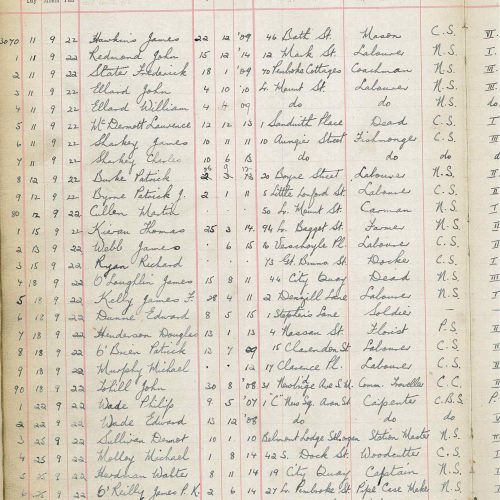 3070 11 9 22 Hawkins James 22 12 '09 46 Bath St. Mason C.S. VI.
1 11 9 22 Redmond John 15 12 '14 12 Mark St. Labourer N.S. I.
2 11 9 22 Slater Frederick 18 1 '09 70 Pembroke Cottages Coachman N.S.
3 11 9 22 Ellard John 4 10 '10 Lr. Mount St. Labourer N.S.
4 11 9 22 Ellard William 4 4 '09 do do N.S. do
5 11 9 22 McDermott Lawrence 12 12 13 1 Sandwith Place Dead C.S. I
6 11 9 22 Sharkey James 10 11 11 10 Aungier Street Fishmonger C.S.
7 11 9 22 Sharkey Charles 10 6 13 do do do
8 12 9 22 Burke Patrick 20 Boyne Street Labourer N.S.
9 12 9 22 Byrne Patrick J. 2 1 11 5 Little Labourer C.S. I
80 12 9 22 Cullen Martin . . . 50 Lr. Mount St. Carman N.S.
1 15 9 22 Kieran Thomas 25 3 14 94 Lr. Baggot St. Farmer N.S.
2 13 9 22 Webb James . 6 15 Verschoyle Pl. Labourer C.S.
3 15 9 22 Ryan Richard . . . 73 Gt. Bruns. St. Docker C.S.
4 18 9 22 O'Loughlin James 15 8 11 44 City Quay Dead N.S.
5 18 9 22 Kelly James F. 28 4 11 2 Denzille Lane Labourer N.S.
6 18 9 22 Dunne Edward 8 5 15 1 Stephens Lane Soldier -
7 18 9 22 Henderson Douglas 13 1 13 4 Nassau St. Florist P.S.
8 18 9 22 O'Brien Patrick 13 7 09 15 Clarendon St. Labourer C.S.
9 18 9 22 Murphy Michael . . 12 17 Clarence Pl. Labourer C.S.
90 18 9 22 John 30 8 '08 31 Comm. Traveller C.C.
1 22 9 22 Wade Philip 9 5 '07 1 "C" New Sq. Carpenter C.B.S.
2 22 9 22 Wade Edward 13 12 '08 do do do
3 25 9 22 Sullivan Dermot 10 1 10 Belmont Lodge Station Master N.S.
4 25 9 22 Molloy Michael 1 8 14 42 S. Dock St. Woodcutter C.S. I
5 25 9 22 Hardman Walter 8 11 14 19 City Quay Captain N.S. I
6 25 9 22 O'Reilly James P. K. 2 6 14 27 Lr. Pembroke St. Pipe Case Maker N.S.